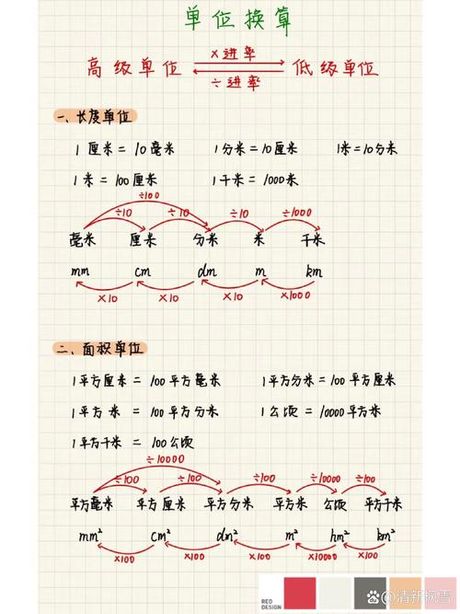 单位换算
高级单位 ×进率 ÷进率 低级单位
一、长度单位
1厘米=10毫米 1分米=10厘米 1米=10分米
1米=100厘米 1千米=1000米
÷100
÷10 ÷10 ÷10 ÷1000
毫米 厘米 分米 米 千米
mm cm dm m km
×10 ×10 ×10 ×1000
二、面积单位
1平方厘米=100平方毫米 1平方分米=100平方厘米
1平方米=100平方分米 1公顷=10000平方米
1平方千米=100公顷
÷10000
÷100 ÷100 ÷100 ÷10000 ÷100
平方毫米 平方厘米 平方分米 平方米 公顷 平方千米
mm² cm² dm² m² hm² km²
×100 ×100 ×100 ×10000 ×100
RED
DESIGN